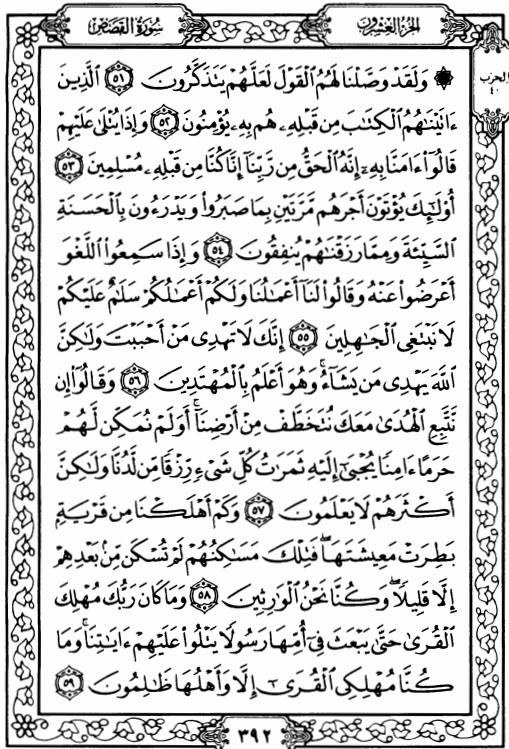 سُورَةُ القَصَصِ
الجُزءُ العِشرُونَ
الحزب
٤٠
۞ وَلَقَدْ وَصَّلْنَا لَهُمُ الْقَوْلَ لَعَلَّهُمْ يَتَذَكَّرُونَ ٥١ الَّذِينَ
ءَاتَيْنَٰهُمُ الْكِتَٰبَ مِن قَبْلِهِۦ هُم بِهِۦ يُؤْمِنُونَ ٥٢ وَإِذَا يُتْلَىٰ عَلَيْهِمْ
قَالُوٓا۟ ءَامَنَّا بِهِۦٓ إِنَّهُ الْحَقُّ مِن رَّبِّنَآ إِنَّا كُنَّا مِن قَبْلِهِۦ مُسْلِمِينَ ٥٣
أُو۟لَٰٓئِكَ يُؤْتَوْنَ أَجْرَهُم مَّرَّتَيْنِ بِمَا صَبَرُوا۟ وَيَدْرَءُونَ بِالْحَسَنَةِ
السَّيِّئَةَ وَمِمَّا رَزَقْنَٰهُمْ يُنفِقُونَ ٥٤ وَإِذَا سَمِعُوا۟ اللَّغْوَ
أَعْرَضُوا۟ عَنْهُ وَقَالُوا۟ لَنَآ أَعْمَٰلُنَا وَلَكُمْ أَعْمَٰلُكُمْ سَلَٰمٌ عَلَيْكُمْ
لَا نَبْتَغِى الْجَٰهِلِينَ ٥٥ إِنَّكَ لَا تَهْدِى مَنْ أَحْبَبْتَ وَلَٰكِنَّ
اللَّهَ يَهْدِى مَن يَشَآءُ ۚ وَهُوَ أَعْلَمُ بِالْمُهْتَدِينَ ٥٦ وَقَالُوٓا۟ إِن
نَّتَّبِعِ الْهُدَىٰ مَعَكَ نُتَخَطَّفْ مِنْ أَرْضِنَآ ۚ أَوَلَمْ نُمَكِّن لَّهُمْ
حَرَمًا ءَامِنًا يُجْبَىٰٓ إِلَيْهِ ثَمَرَٰتُ كُلِّ شَىْءٍ رِّزْقًا مِّن لَّدُنَّا وَلَٰكِنَّ
أَكْثَرَهُمْ لَا يَعْلَمُونَ ٥٧ وَكَمْ أَهْلَكْنَا مِن قَرْيَةٍۭ
بَطِرَتْ مَعِيشَتَهَا ۖ فَتِلْكَ مَسَٰكِنُهُمْ لَمْ تُسْكَن مِّنۢ بَعْدِهِمْ
إِلَّا قَلِيلًا ۖ وَكُنَّا نَحْنُ الْوَٰرِثِينَ ٥٨ وَمَا كَانَ رَبُّكَ مُهْلِكَ
الْقُرَىٰ حَتَّىٰ يَبْعَثَ فِىٓ أُمِّهَا رَسُولًا يَتْلُوا۟ عَلَيْهِمْ ءَايَٰتِنَا ۚ وَمَا
كُنَّا مُهْلِكِى الْقُرَىٰٓ إِلَّا وَأَهْلُهَا ظَٰلِمُونَ ٥٩
٣٩٢